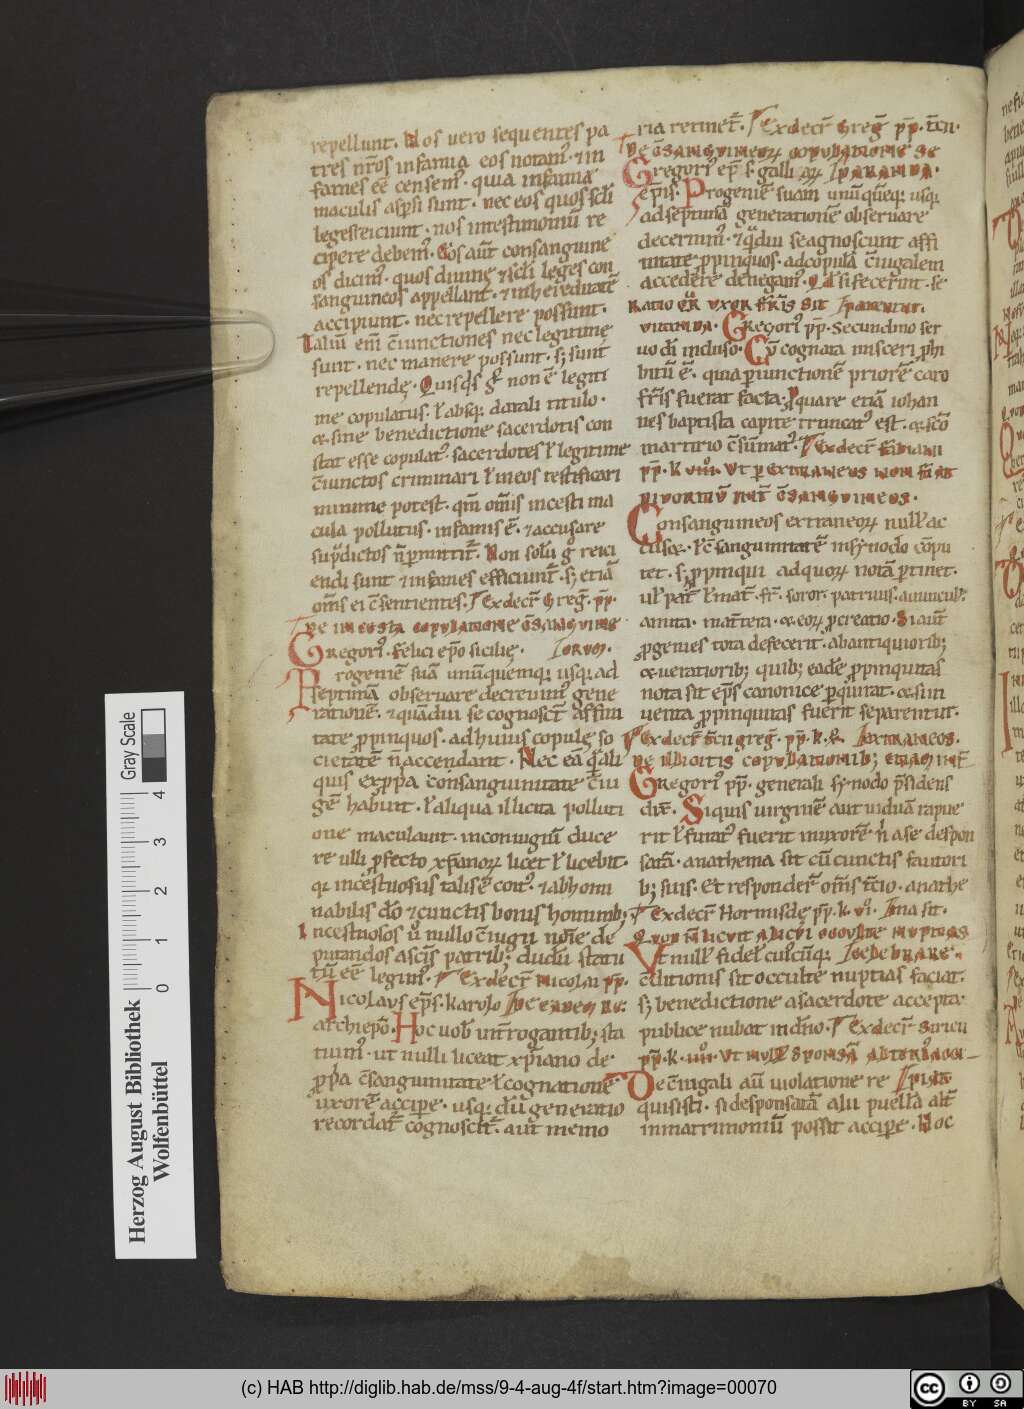 repellunt. Nos vero sequentes pa
tres nr̄os infamia eos notam᷒. ⁊ in
fames eē censem᷒. quia infamię
maculis asp̄si sunt. nec eos quos sc̄li
leges reiciunt. nos in testimoniū re
cipere debem᷒. Eos aūt consanguine
os dicim᷒. quos diuinę ⁊ sc̄li leges con
sanguineos appellant. ⁊ in hereditatē
accipiunt. nec repellere possunt.
Taliū eni c̄iunctiones nec legitimę
sunt. nec manere possunt. s; sunt
repellendę. Quisq̄s g° non ē legiti
me copulatus. ł absq; dotali titulo.
⁊ sine benedictione sacerdotis con
stat esse copulat᷒. sacerdotes ł legitime
c̄iunctos criminari ł in eos testificari
minime potest. qm̄ om̄is incesti ma
cula pollutus. infamis ē. ⁊ accusare
sup̄dictos n̄ p̄mittit᷑. Non solū g° reici
endi sunt ⁊ infames efficiunt᷑. s; etiā
om̄s ei c̄sentientes. Ex decr̄ Greḡ. pp̄.
De incesta copulatione c̄sanguine
Gregori᷒. felici ep̄o sicilię. orum.
Progeniē suā unūquemq; usq; ad
septimā obseruare decreuim᷒ gene
rationē. ⁊ quādiu se cognosc̄t affini
tate p̄pinquos. ad huius copulę so
cietatē n̄ accendant. Nec eā q̄ ali
quis ex p̄pa consanguinitate c̄iu
gē habuit. ł aliqua illicita polluti
one maculauit. in coniugiū duce
re ulli p̄fecto xp̄anoꝝ licet ł licebit.
q; incestuosus talis ē coit᷒. ⁊ abhomi
nabilis dō ⁊ cunctis bonis hominib;
Incestuosos ū nullo c̄iugii noīe de
putandos a sc̄is patrib; dudū statu
tū eē legim᷒. Ex decr̄ Nicolai pp̄.
Nicolaus ep̄s. karolo De eadem re.
archiep̄o. Hoc uob̄ int̄rogantib; sta
tuim᷒. ut nulli liceat xp̄iano de
p̄pa c̄sanguinitate ł cognatione
uxorē accipe. usq; dū generatio
recordat᷑ cognoscit᷑. aut memo
ria retinet᷑. Ex decr̄ Greḡ pp̄. t̄cii.
De c̄sanguineoꝝ copulatione se
Gregori᷒ ep̄ s. galliaꝝ paranda.
ep̄is. Progeniē suam unūquēq; usq;
ad septimā generationē obseruare
decernim᷒. ⁊ q̄diu se agnoscunt affi
nitate p̄pinquos. ad copulā c̄iugalem
accedere denegam᷒. Qd̄ si fecerint. se
Ratio q̄r uxor fr̄is sit parentur.
uitanda. Gregori᷒ pp̄. Secundino ser
uo dī incluso. Cū cognata misceri p̄hi
bitū ē. quia p̄ iunctionē priorē caro
fr̄is fuerat facta. p̄ quare etiā iohan
nes baptista capite truncat᷒ est. ⁊ sc̄o
martirio c̄sūmat᷒. Ex decr̄ fabiani
pp̄. k viiii. Ut p̄ extraneus non fiat
diuortiū int̄ c̄sanguineos.
Consanguineos extraneoꝝ null᷒ ac
cuset. ł c̄sanguinitatē in synodo c̄pu
tet. s; p̄pinqui ad quoꝝ notā p̄tinet.
ul̄ pat̄. ł mat̄. fr̄. soror. patruus. auuncul᷒.
amita. mat̄tera. ⁊ eoꝝ p̄creatio. Si aūt
p̄genies tota defecerit. ab antiquiorib;
⁊ ueratiorib; quib; eadē p̄pinquitas
nota sit ep̄s canonice p̄quirat. ⁊ si in
uenta p̄pinquitas fuerit separentur.
Ex decr̄ t̄cii greḡ. pp̄. k. extraneos.
De illicitis copulationib;
Gregori᷒ pp̄. generali synodo p̄sidens
dix̄. Siquis uirginē aut uiduā rapue
rit ł furat᷒ fuerit in uxorē n̄ a se despon
satā. anathema sit cū cunctis fautori
b; suis. Et responder̄t om̄s t̄cio. anathe
Ex decr̄ Hormisdę pp̄. k. vi. ma sit.
Quod n̄ licuit alicui occulte nuptias
Ut null᷒ fidel᷒ cuiuscūq; celebrare.
c̄ditionis sit occulte nuptias faciat.
s; benedictione a sacerdote accepta.
publice nubat in dn̄o. Ex decr̄ Siricii
pp̄. k. iiii. Ut null᷒ sponsā alterius acci
De c̄iugali aū uiolatione re piat.
quisisti. si desponsatā alii puellā alt̄
in matrimoniū possit accipe. Hoc
Gray Scale
Herzog August Bibliothek
Wolfenbüttel
0 1 2 3 4
(c) HAB http://diglib.hab.de/mss/9-4-aug-4f/start.htm?image=00070
cc BY SA